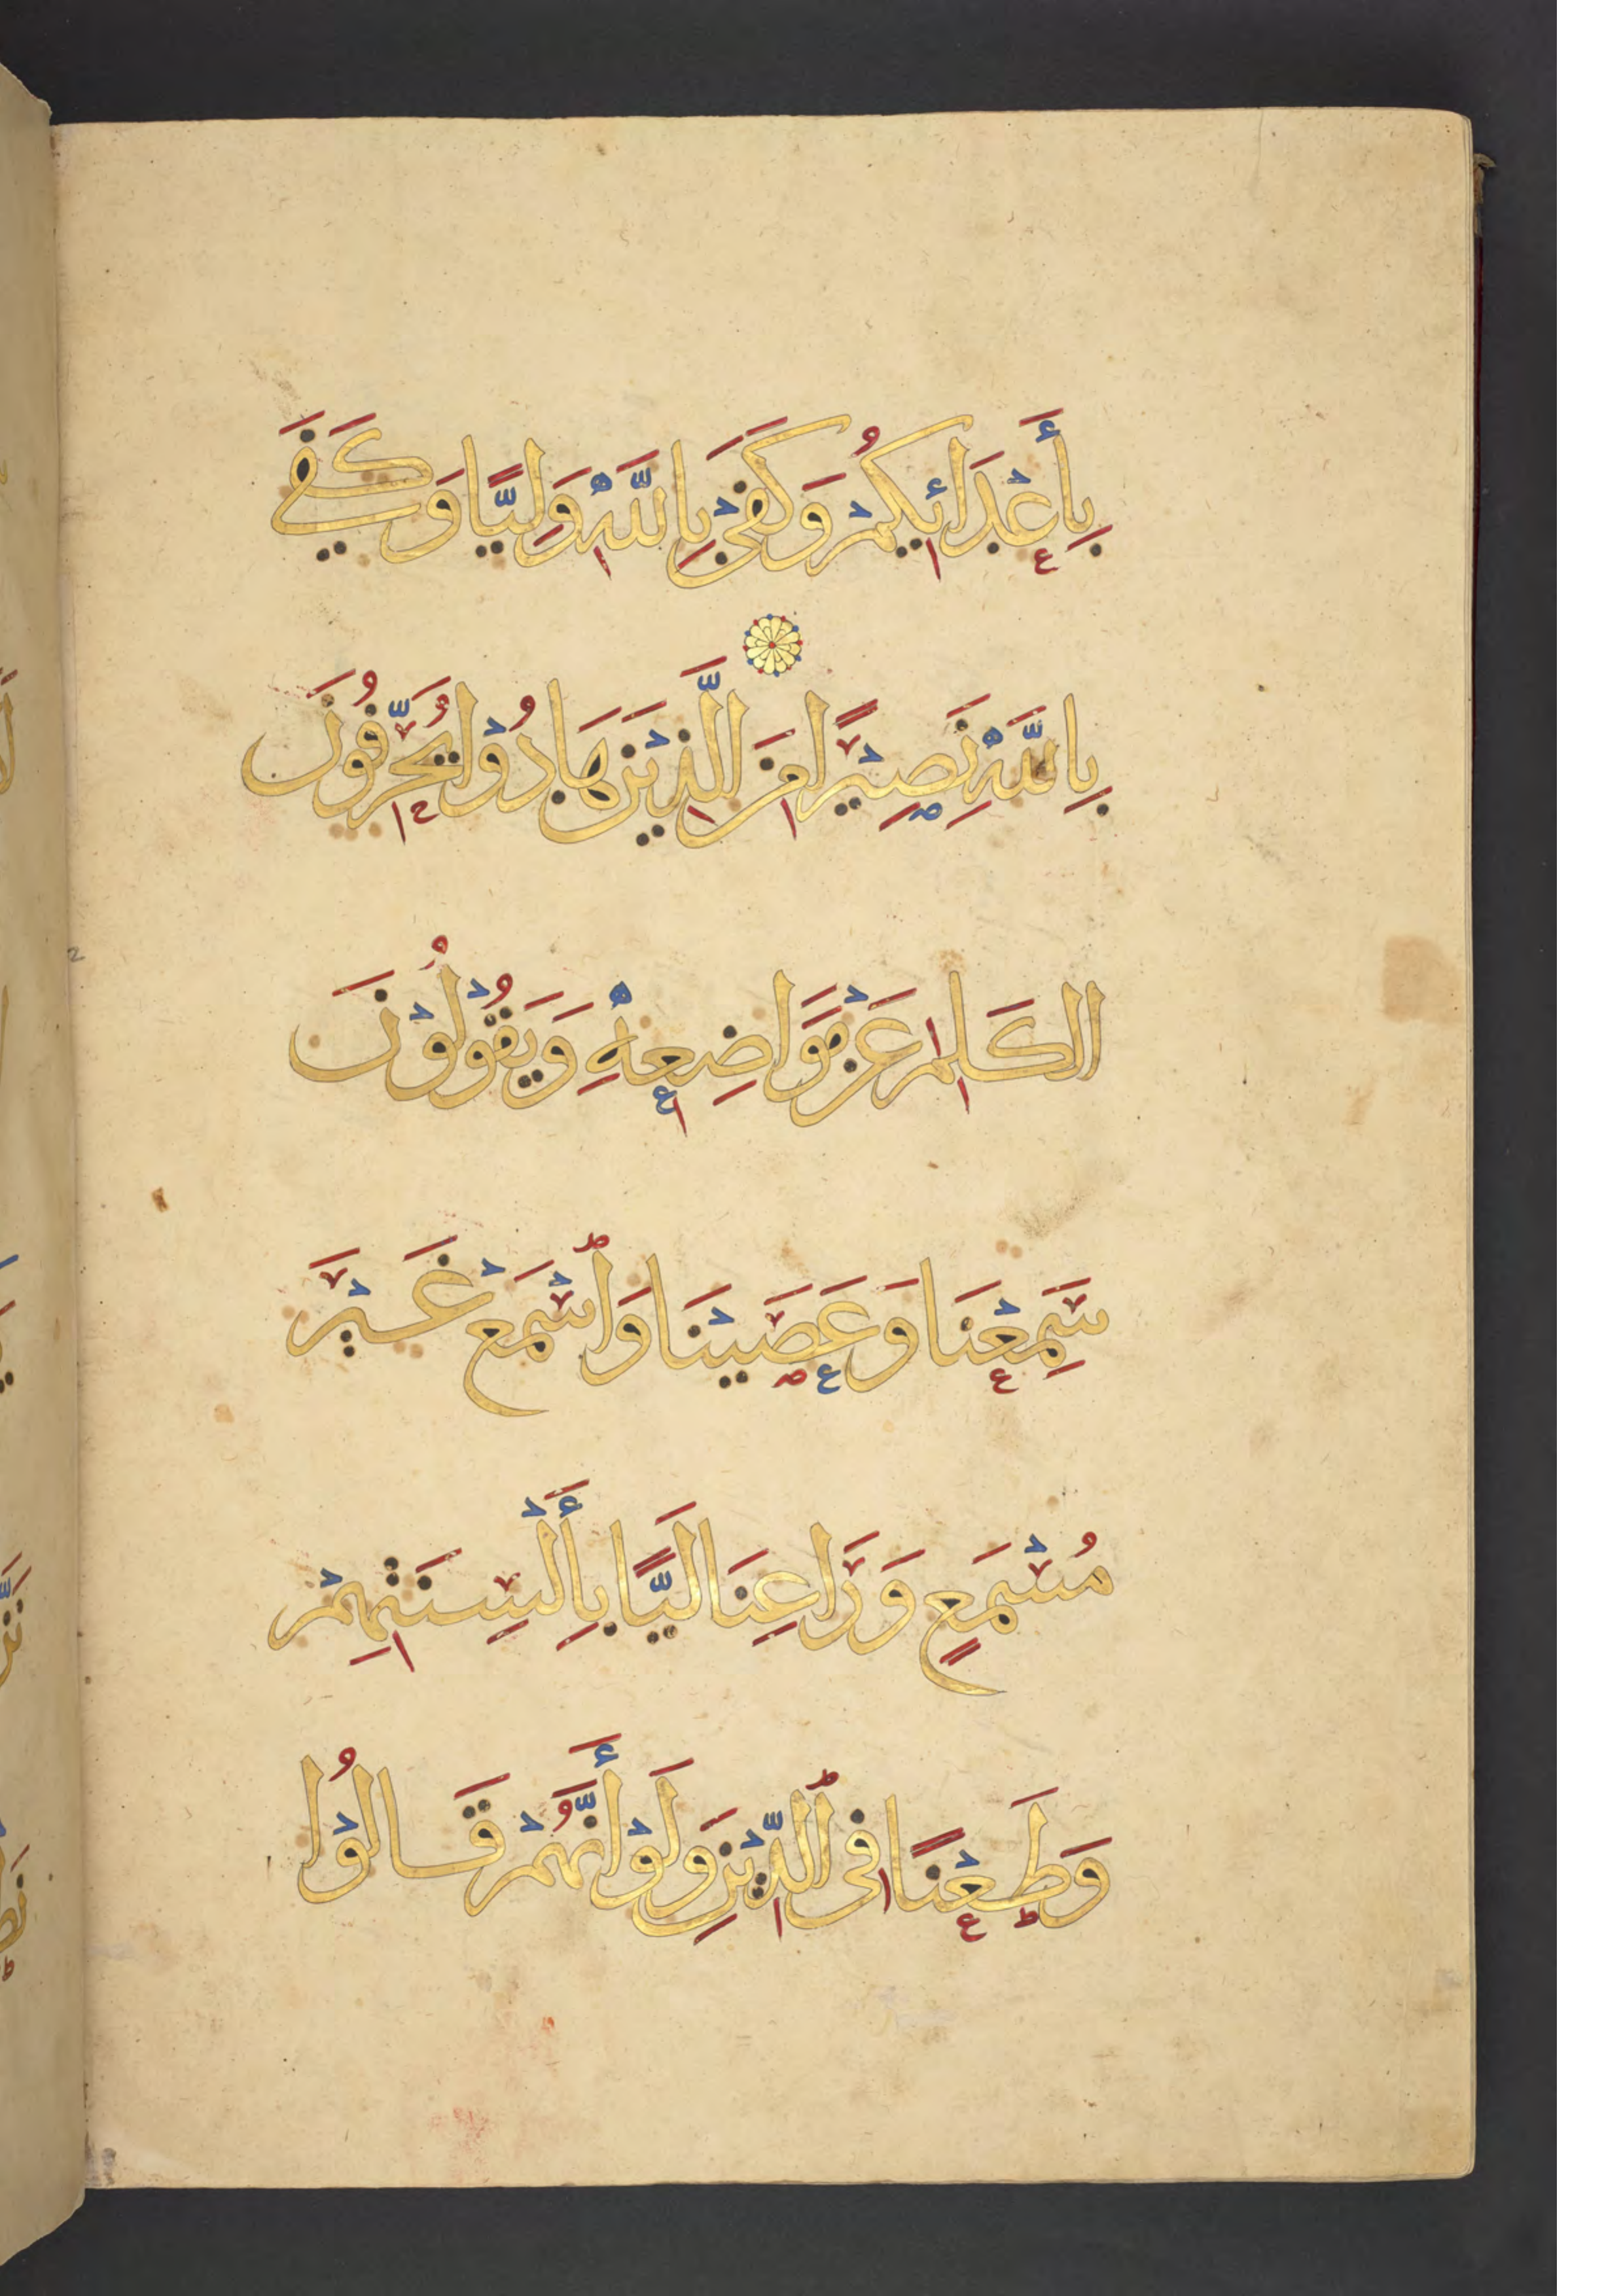 بِأَعْدَائِكُمْ وَكَفَىٰ بِاللَّهِ وَلِيًّا وَكَفَىٰ
بِاللَّهِ نَصِيْرًا مِنَ الَّذِيْنَ هَادُوْا يُحَرِّفُوْنَ
الْكَلِمَ عَنْ مَوَاضِعِهِ وَيَقُوْلُوْنَ
سَمِعْنَا وَعَصَيْنَا وَاسْمَعْ غَيْرَ
مُسْمَعٍ وَرَاعِنَا لَيًّا بِأَلْسِنَتِهِمْ
وَطَعْنًا فِي الدِّيْنِ وَلَوْ أَنَّهُمْ قَالُوْا